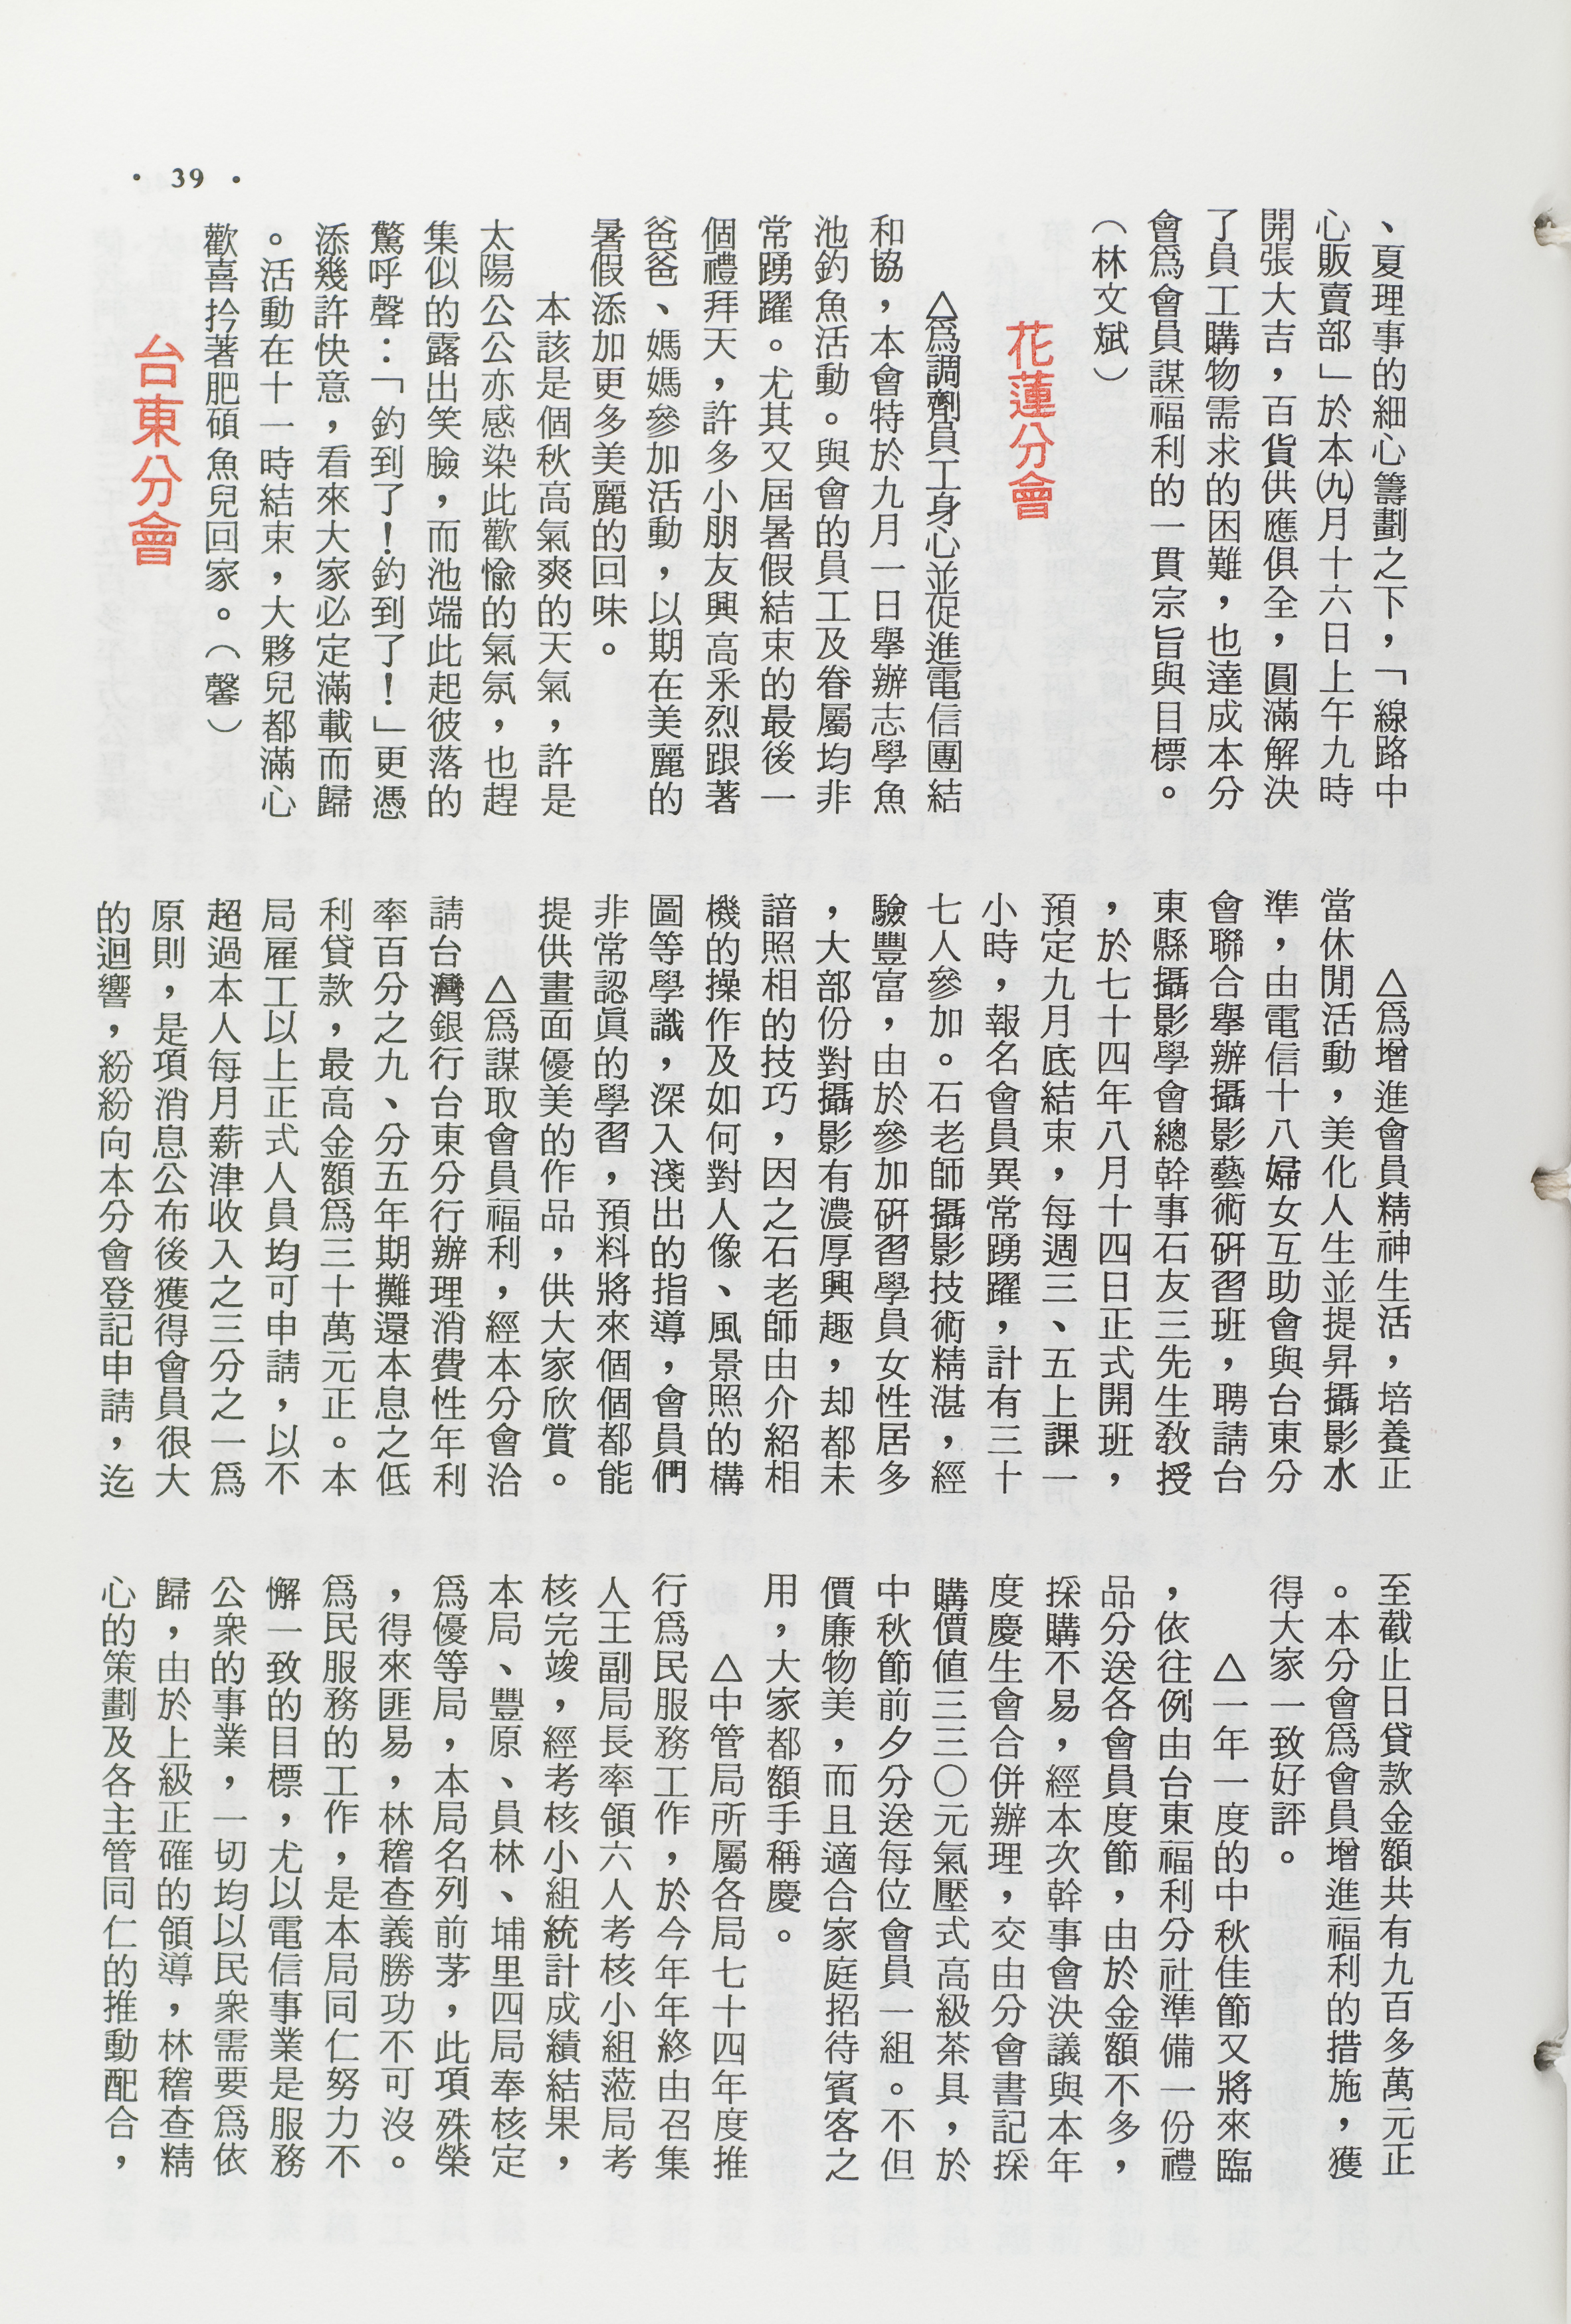 • 39 •
、夏理事的細心籌劃之下，「線路中
心販賣部」於本㈨月十六日上午九時
開張大吉，百貨供應俱全，圓滿解決
了員工購物需求的困難，也達成本分
會爲會員謀福利的一貫宗旨與目標。
（林文斌）
花蓮分會
△爲調劑員工身心並促進電信團結
和協，本會特於九月一日舉辦志學魚
池釣魚活動。與會的員工及眷屬均非
常踴躍。尤其又屆暑假結束的最後一
個禮拜天，許多小朋友興高釆烈跟著
爸爸、媽媽參加活動，以期在美麗的
暑假添加更多美麗的回味。
本該是個秋高氣爽的天氣，許是
太陽公公亦感染此歡愉的氣氛，也趕
集似的露出笑臉，而池端此起彼落的
驚呼聲：「釣到了！釣到了！」更憑
添幾許快意，看來大家必定滿載而歸
。活動在十一時結束，大夥兒都滿心
歡喜拎著肥碩魚兒回家。（馨）
台東分會
△爲增進會員精神生活，培養正
當休閒活動，美化人生並提昇攝影水
準，由電信十八婦女互助會與台東分
會聯合舉辦攝影藝術硏習班，聘請台
東縣攝影學會總幹事石友三先生教授
，於七十四年八月十四日正式開班，
預定九月底結束，每週三、五上課一
小時，報名會員異常踴躍，計有三十
七人參加。石老師攝影技術精湛，經
驗豐富，由於參加硏習學員女性居多
，大部份對攝影有濃厚興趣，却都未
諳照相的技巧，因之石老師由介紹相
機的操作及如何對人像、風景照的構
圖等學識，深入淺出的指導，會員們
非常認眞的學習，預料將來個個都能
提供畫面優美的作品，供大家欣賞。
△爲謀取會員福利，經本分會洽
請台灣銀行台東分行辦理消費性年利
率百分之九、分五年期攤還本息之低
利貸款，最高金額爲三十萬元正。本
局雇工以上正式人員均可申請，以不
超過本人每月薪津收入之三分之一爲
原則，是項消息公布後獲得會員很大
的迴響，紛紛向本分會登記申請，迄
至截止日貸款金額共有九百多萬元正
。本分會爲會員增進福利的措施，獲
得大家一致好評。
△一年一度的中秋佳節又將來臨
，依往例由台東福利分社準備一份禮
品分送各會員度節，由於金額不多，
採購不易，經本次幹事會決議與本年
度慶生會合併辦理，交由分會書記採
購價值三三〇元氣壓式高級茶具，於
中秋節前夕分送每位會員一組。不但
價廉物美，而且適合家庭招待賓客之
用，大家都額手稱慶。
△中管局所屬各局七十四年度推
行爲民服務工作，於今年年終由召集
人王副局長率領六人考核小組蒞局考
核完竣，經考核小組統計成績結果，
本局、豐原、員林、埔里四局奉核定
爲優等局，本局名列前茅，此項殊榮
，得來匪易，林稽查義勝功不可沒。
爲民服務的工作，是本局同仁努力不
懈一致的目標，尤以電信事業是服務
公衆的事業，一切均以民衆需要爲依
歸，由於上級正確的領導，林稽查精
心的策劃及各主管同仁的推動配合，